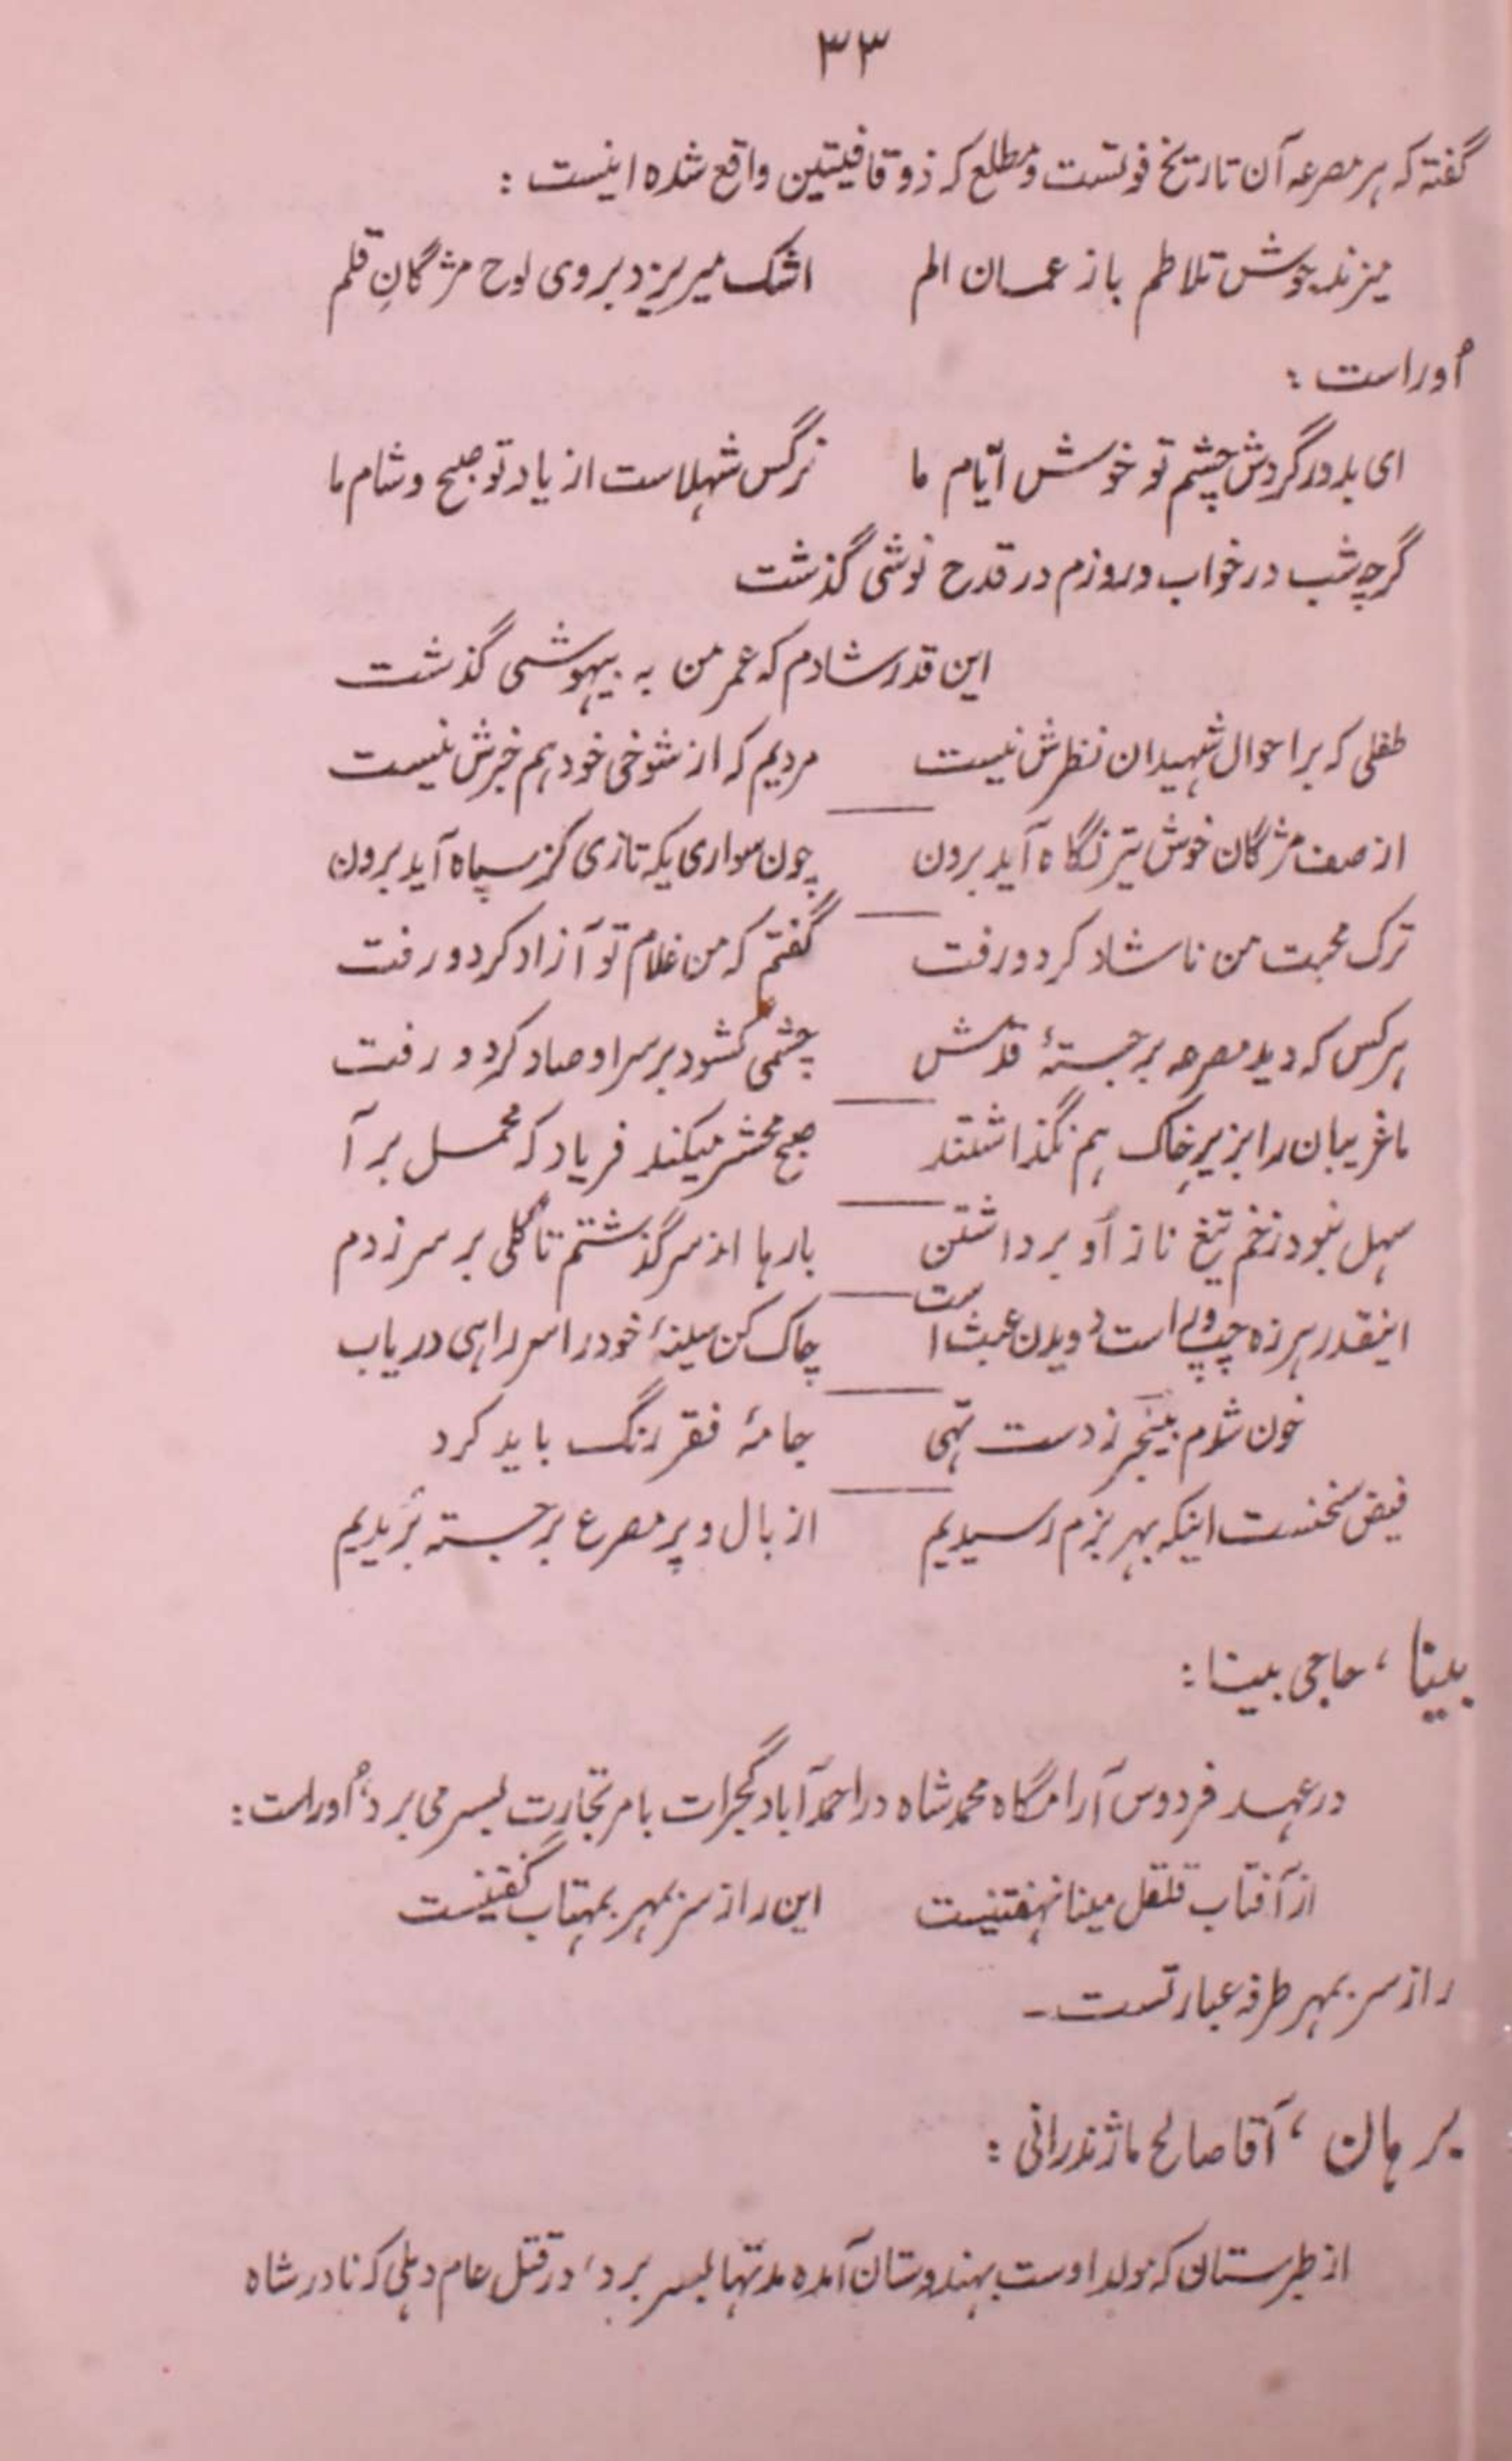 ۳۳
گفته که هر مصرعه آن تاریخ فوتست و مطلع که ذو قافیتین واقع شده اینست :
میزند جوش تلاطم باز عمان الم اشک میریزد بروی لوح مژگانِ قلم
اُوراست :
ای بدور گردش چشم تو خوش ایّام ما نرگس شهلاست از یاد تو صبح و شام ما
گرچه شب در خواب و روزم در قدح نوشی گذشت
این قدر شادم که عمر من به بیهوشی گذشت
طفلی که بر احوال شهیدان نظرش نیست مردیم که از شوخی خود هم خبرش نیست
از صف مژگان خوش تیر نگاه آید برون چون سواری یکه تازی کز سپاه آید برون
ترک محبت من ناشاد کرد و رفت گفتم که من غلام تو آزاد کرد و رفت
هر کس که دید مصرعه برجستهٔ قدّش چشمی گشود بر سر او صاد کرد و رفت
ما غریبان را بزیرِ خاک هم نگذاشتند صبح محشر میکند فریاد که محمل بر آ
سهل نبود زخم تیغ ناز اُو برداشتن بارها از سر گذشتم تا گُلی بر سر زدم
اینقدر هرزه چپ و است دویدن عبث است چاک کن سینهٔ خود را سر راهی دریاب
خون شدم بیخبر ز دست تهی جامهٔ فقر رنگ باید کرد
فیض سخنست اینکه بهر بزم رسیدیم از بال و پر مصرع برجسته پریدیم
بینا ، حاجی بینا :
در عهد فردوس آرامگاه محمد شاه در احمد آباد گجرات بامر تجارت بسر می برد ، اُوراست :
از آفتاب قلقل مینا نهفتنیست این راز سر بمهر بمهتاب گفتنیست
راز سر بمهر طرفه عبارتست ۔
برهان ، آقا صالح ماژندرانی :
از طبرستان که مولد اوست بهندوستان آمده مدتها بسر برد ، در قتل عام دهلی که نادر شاه